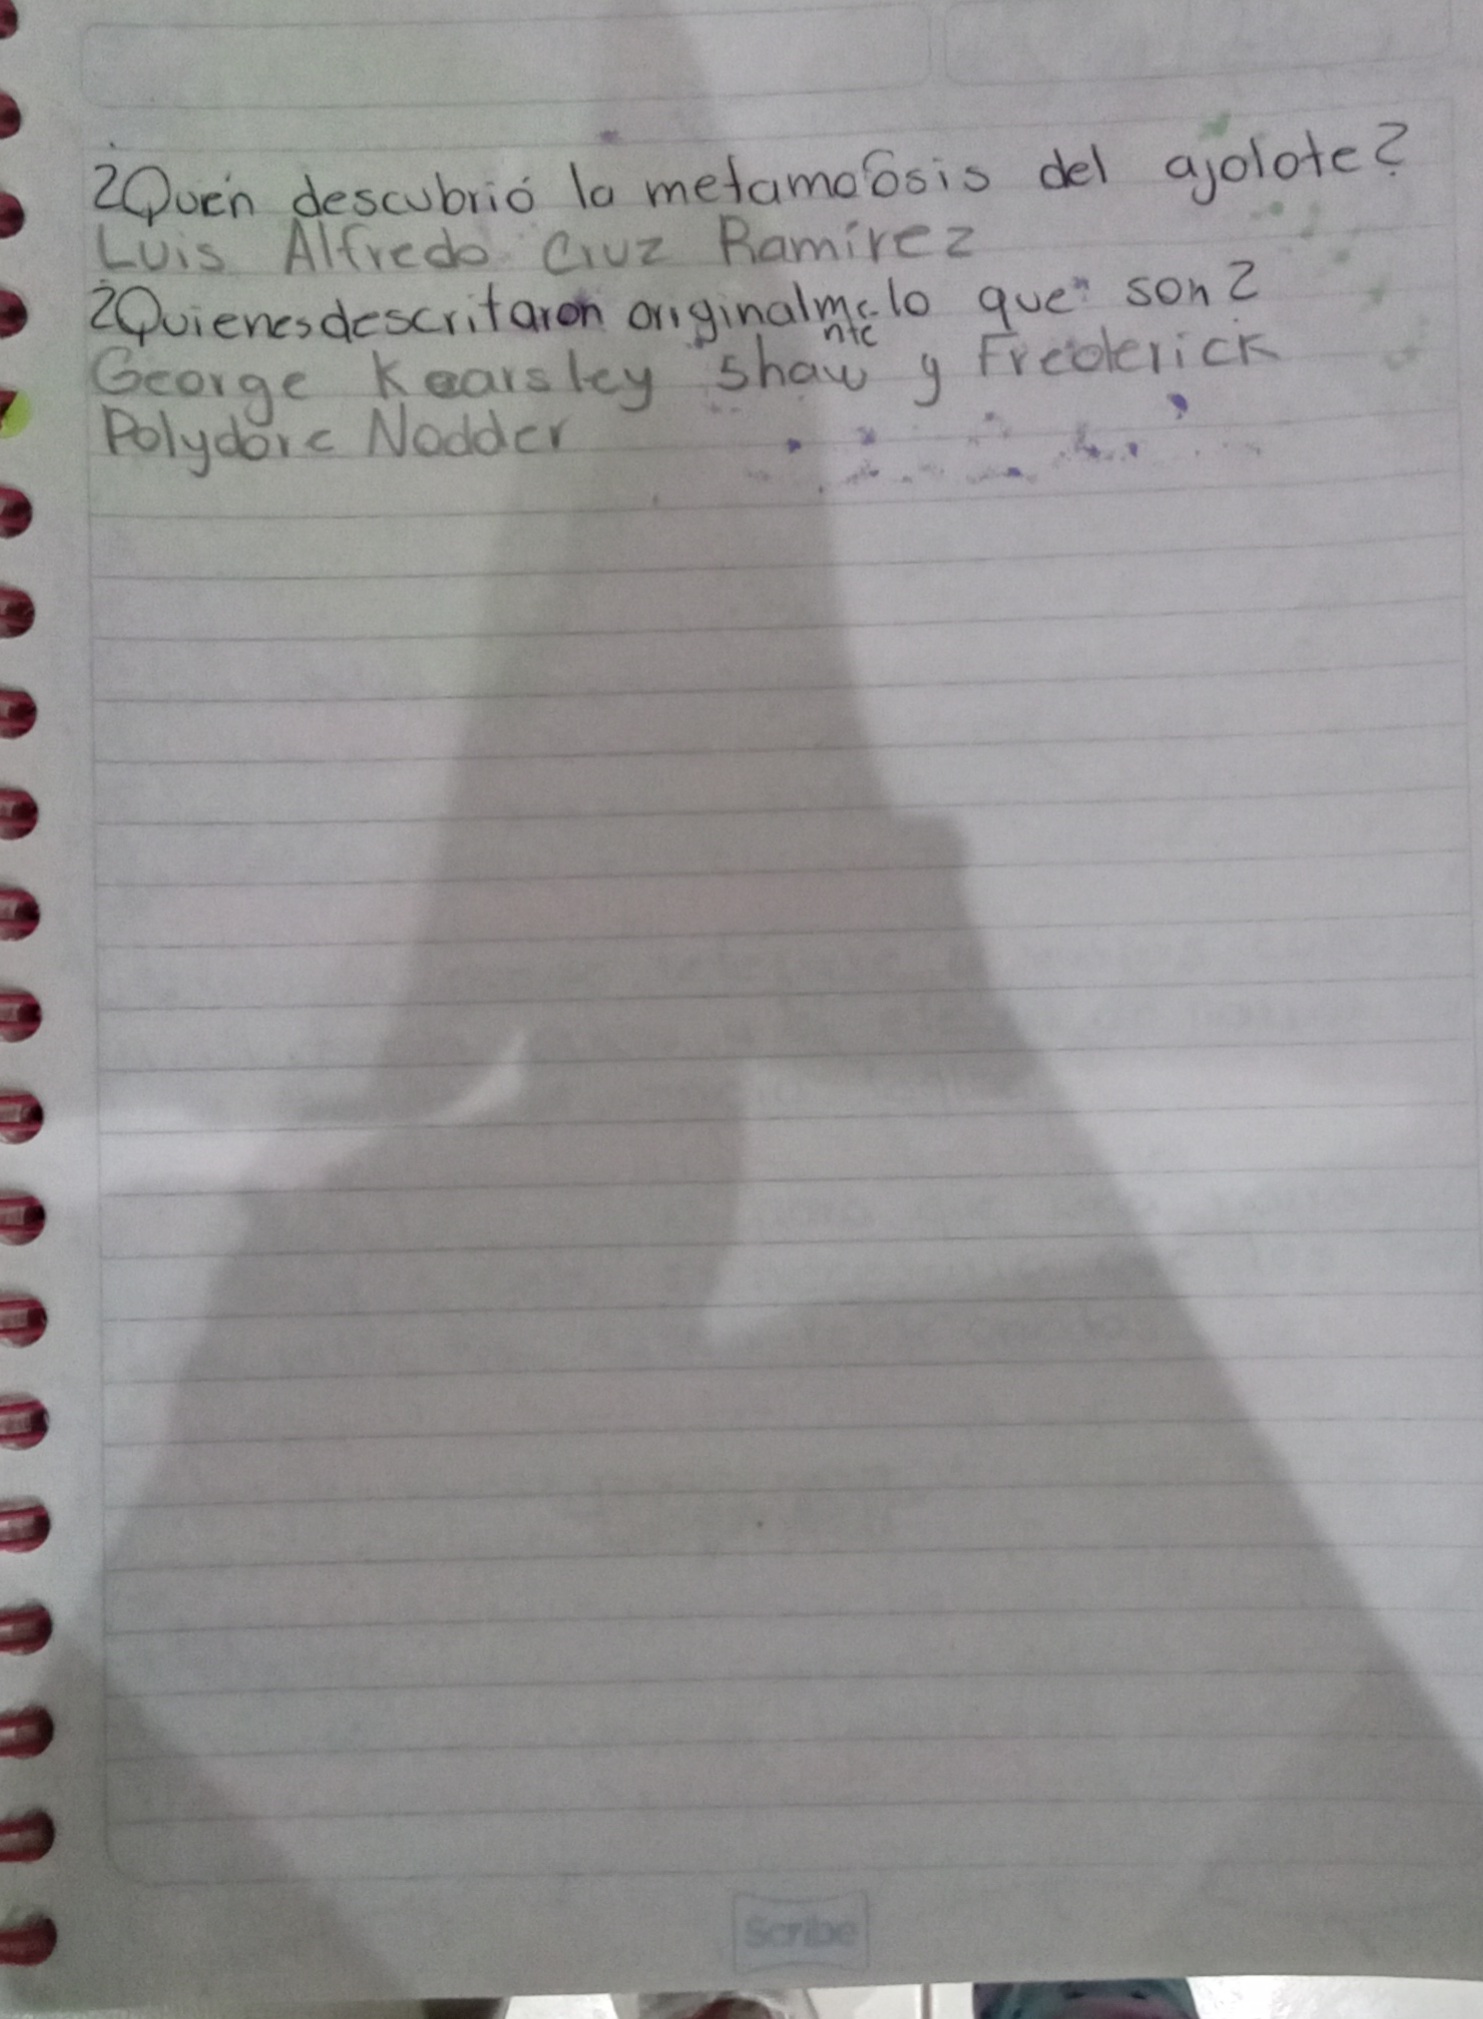 ¿Quén descubrió la metamoosis del ajolote?
Luis Alfredo Cruz Ramírez
¿Quienes descritaron originalmente lo que son?
George Kearsley Shaw y Frederick
Polydore Nodder
Scribe